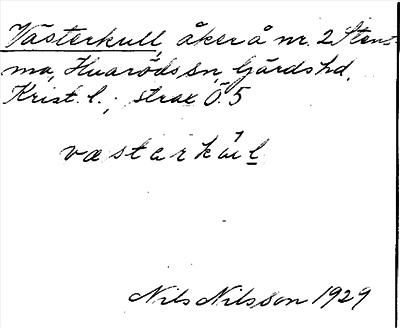 Västerkull, åker å nr. 2 Stens-
ma, Huaröds sn, Gärds hd,
Krist. l.; strax Ö. 5
væstarkul
Nils Nilsson 1929